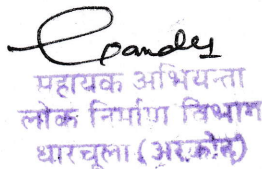 Pandey
सहायक अभियन्ता
लोक निर्माण विभाग
धारचूला (अस्कोट)